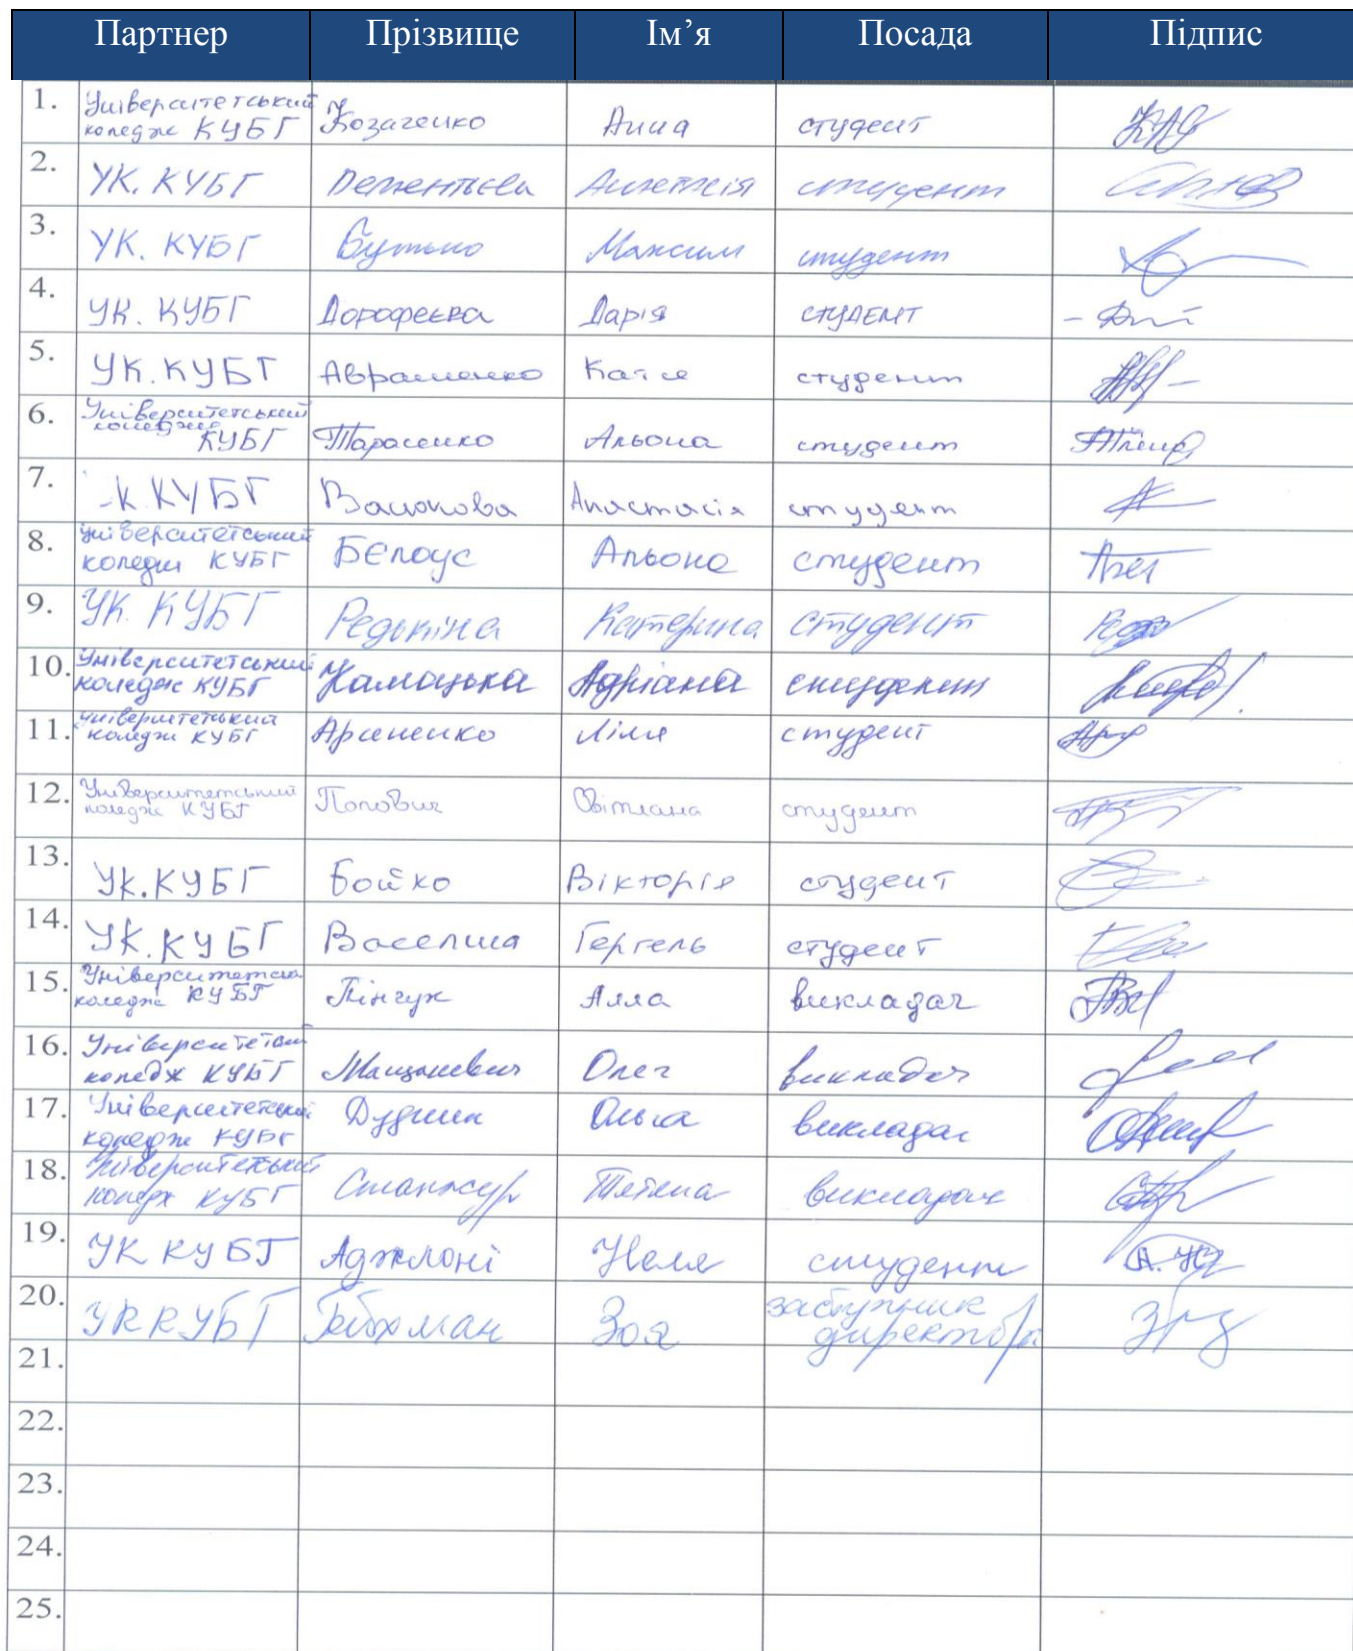 Партнер Прізвище Ім’я Посада Підпис
1. Університетський коледж КУБГ Козаченко Анна студент
2. УК. КУБГ Дементьєва Анастасія студент
3. УК. КУБГ Бутько Максим студент
4. УК. КУБГ Дорофеєва Дарія студент
5. УК. КУБГ Авраменко Катя студент
6. Університетський коледж КУБГ Тарасенко Альона студент
7. К. КУБГ Анастасія студент
8. Університетський коледж КУБГ Бєлоус Альона студент
9. УК. КУБГ Редькіна Катерина студент
10. Університетський коледж КУБГ Камоцька Адріана студент
11. Університетський коледж КУБГ Арсененко Ліля студент
12. Університетський коледж КУБГ Попович Світлана студент
13. УК. КУБГ Бойко Вікторія студент
14. УК. КУБГ Василина Гергель студент
15. коледж КУБГ Пінчук Алла викладач
16. коледж КУБГ Олег викладач
17. Університетський коледж КУБГ Дудник Ольга викладач
18. Університетський коледж КУБГ Станжур Тетяна викладач
19. УК КУБГ Аджлоні Неля студент
20. УК КУБГ Гейхман Зоя заступник директора
21.
22.
23.
24.
25.